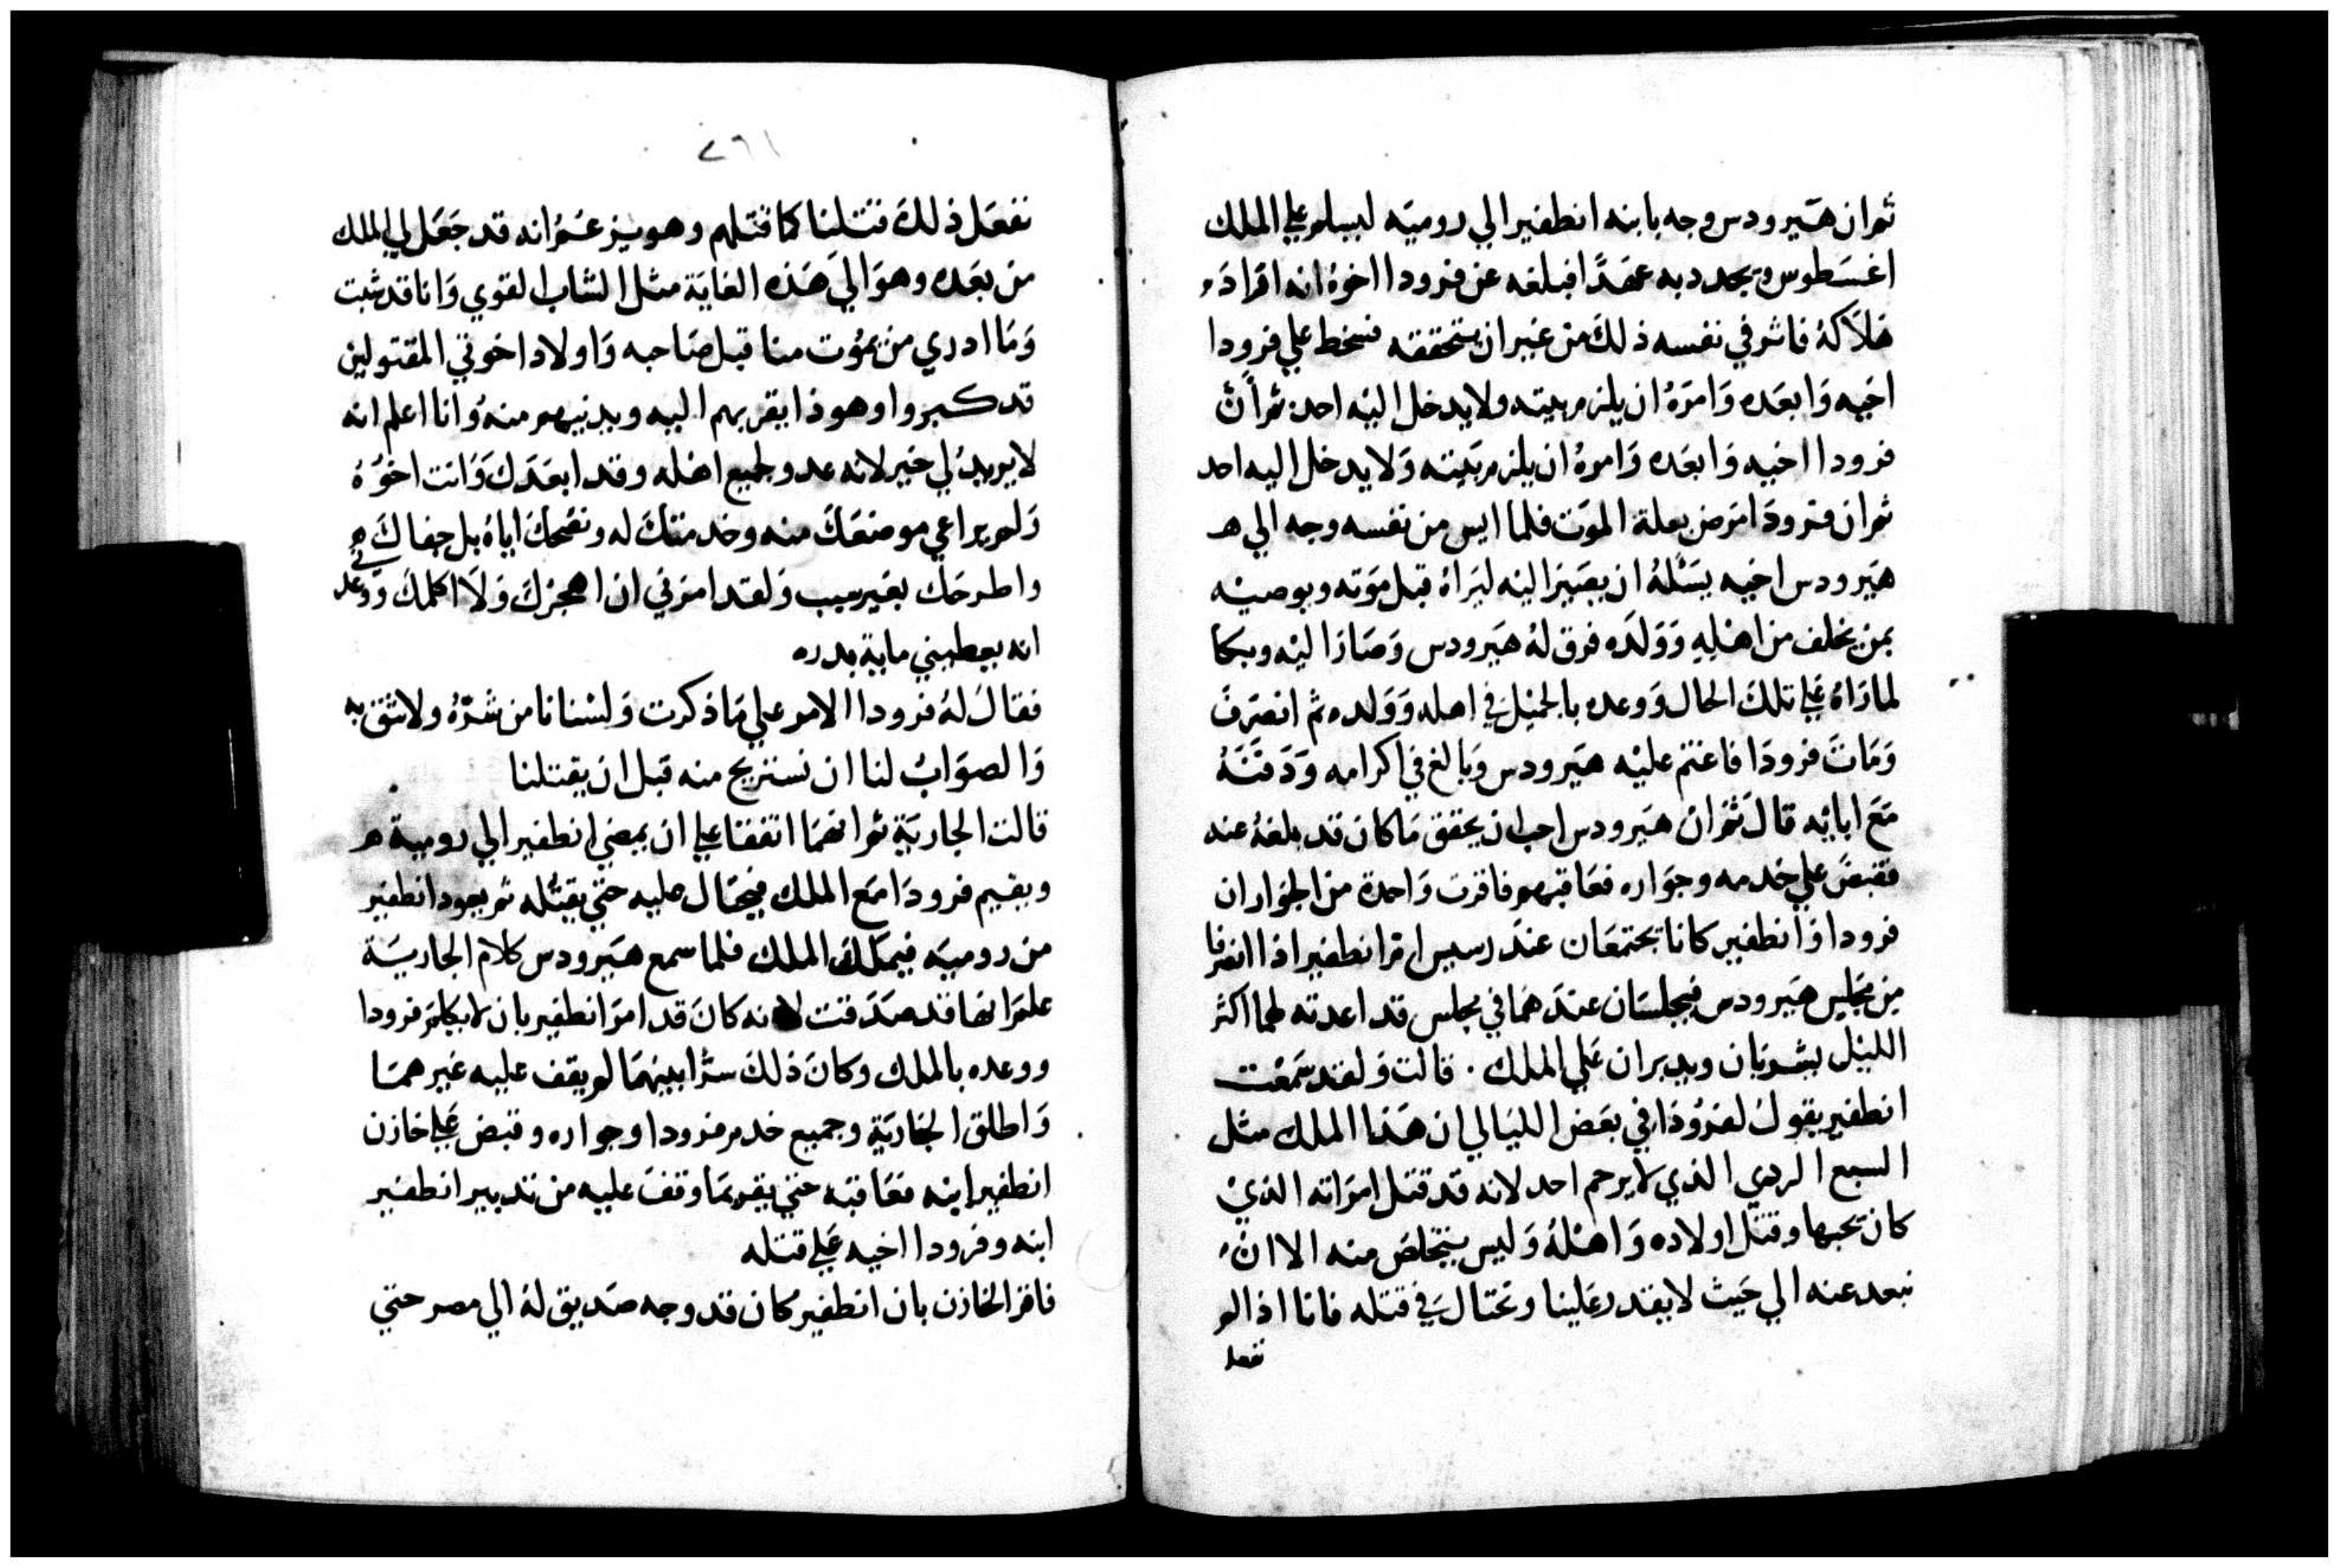 ثم ان هيرودس وجه بابنه انطفير الي رومية ليسلم علي الملك
اغسطوس ويجدد به عهدًا فبلغه عن فرودا اخوه انه اراد
هلاكه فاثر في نفسه ذلك من غير ان يتحققه فسخط علي فرودا
اخيه وابعده وامره ان يلزم بيته ولا يدخل اليه احد ثم ان
فرودا اخيه وابعده وامره ان يلزم بيته ولا يدخل اليه احد
ثم ان فرودا مرض بعلة الموت فلما ايس من نفسه وجه الي هـ
هيرودس اخيه يسئله ان يصير اليه ليراه قبل موته ويوصيه
بمن يخلف من اهله وولده فرق له هيرودس وصار اليه وبكا
لما راه علي تلك الحال ووعده بالجميل في اهله وولده ثم انصرف
ومات فرودا فاغتم عليه هيرودس وبالغ في اكرامه ودفنه
مع ابائه قال ثم ان هيرودس احب ان يحقق ما كان قد بلغه عنه
فقبض علي خدمه وجواره فعاقبهم فاقرت واحدة من الجوار ان
فرودا وانطفير كانا يجتمعان عند رسيس ام انطفير اذا انصرفا
من مجلس هيرودس فيجلسان عندهما في مجلس قد اعدته لهما اكثر
الليل يشربان ويدبران علي الملك . قالت ولقد سمعت
انطفير يقول لفرودا في بعض الليالي ان هذا الملك مثل
السبع الردي الذي لا يرحم احد لانه قد قتل امراته الذي
كان يحبها وقتل اولاده واهله وليس يتخلص منه الا ان
نبعد عنه الي حيث لا يقدر علينا ونحتال في قتله فانا اذا لم
نفعل
٢٦١
نفعل ذلك قتلنا كما قتلهم وهو يزعم انه قد جعل لي الملك
من بعده وهو الي هذه الغاية مثل الشاب القوي وانا قد شبت
وما ادري من يموت منا قبل صاحبه واولاد اخوتي المقتولين
قد كبروا وهو ذا يقربهم اليه ويدنيهم منه وانا اعلم انه
لا يريد لي خير لانه عدو لجميع اهله وقد ابعدك وانت اخوه
ولم يراعي موضعك منه وخدمتك له ونصحك اياه بل جفاك
واطرحك بغير سبب ولقد امرني ان اهجرك ولا اكلمك ووعدني
انه يعطيني ماية بدره
فقال له فرودا الامر علي ما ذكرت ولسنا نامن شره ولا نثق به
والصواب لنا ان نستريح منه قبل ان يقتلنا
قالت الجارية ثم انهما اتفقا علي ان يمضي انطفير الي رومية هـ
ويقيم فرودا مع الملك فيحتال عليه حتي يقتله ثم يعود انطفير
من رومية فيملك الملك فلما سمع هيرودس كلام الجارية
علم انها قد صدقت لانه كان قد امر انطفير بان لا يكلم فرودا
ووعده بالملك وكان ذلك سرًا بينهما لم يقف عليه غيرهما
واطلق الجارية وجميع خدم فرودا وجواره وقبض علي خازن
انطفير ابنه فعاقبه حتي يقر بما وقف عليه من تدبير انطفير
ابنه وفرودا اخيه علي قتله
فاقر الخازن بان انطفير كان قد وجه صديق له الي مصر حتي